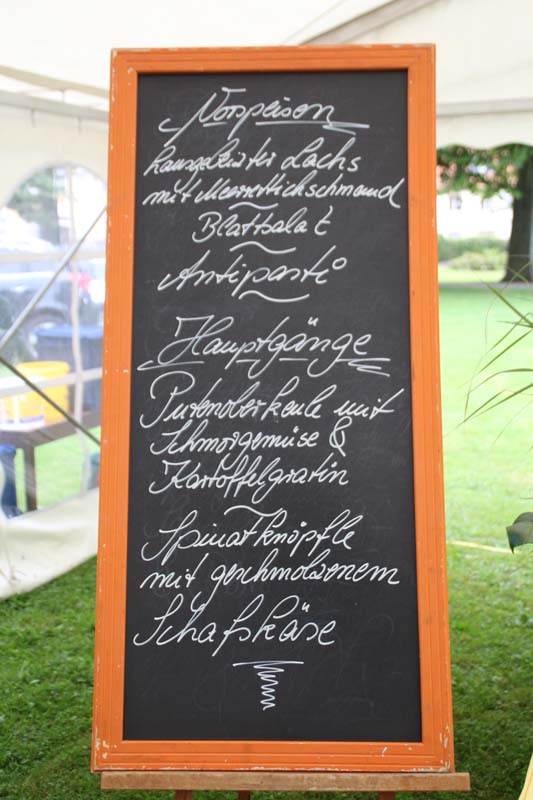 Vorspeisen
hausgebeizter Lachs
mit Meerrettichschmand
Blattsalat
Antipasti
Hauptgänge
Putenoberkeule mit
Schmorgemüse &
Kartoffelgratin
Spinatknöpfle
mit geschmolzenem
Schafskäse